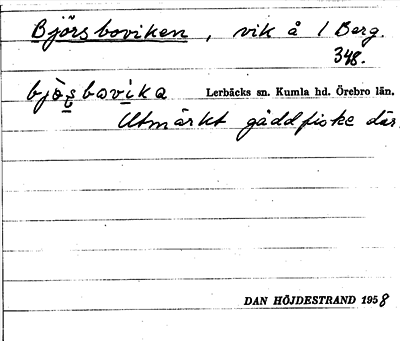 Björsboviken, vik å 1 Berg.
348.
bjò̀ʂbovika Lerbäcks sn. Kumla hd. Örebro län.
Utmärkt gäddfiske där.
DAN HÖJDESTRAND 1958